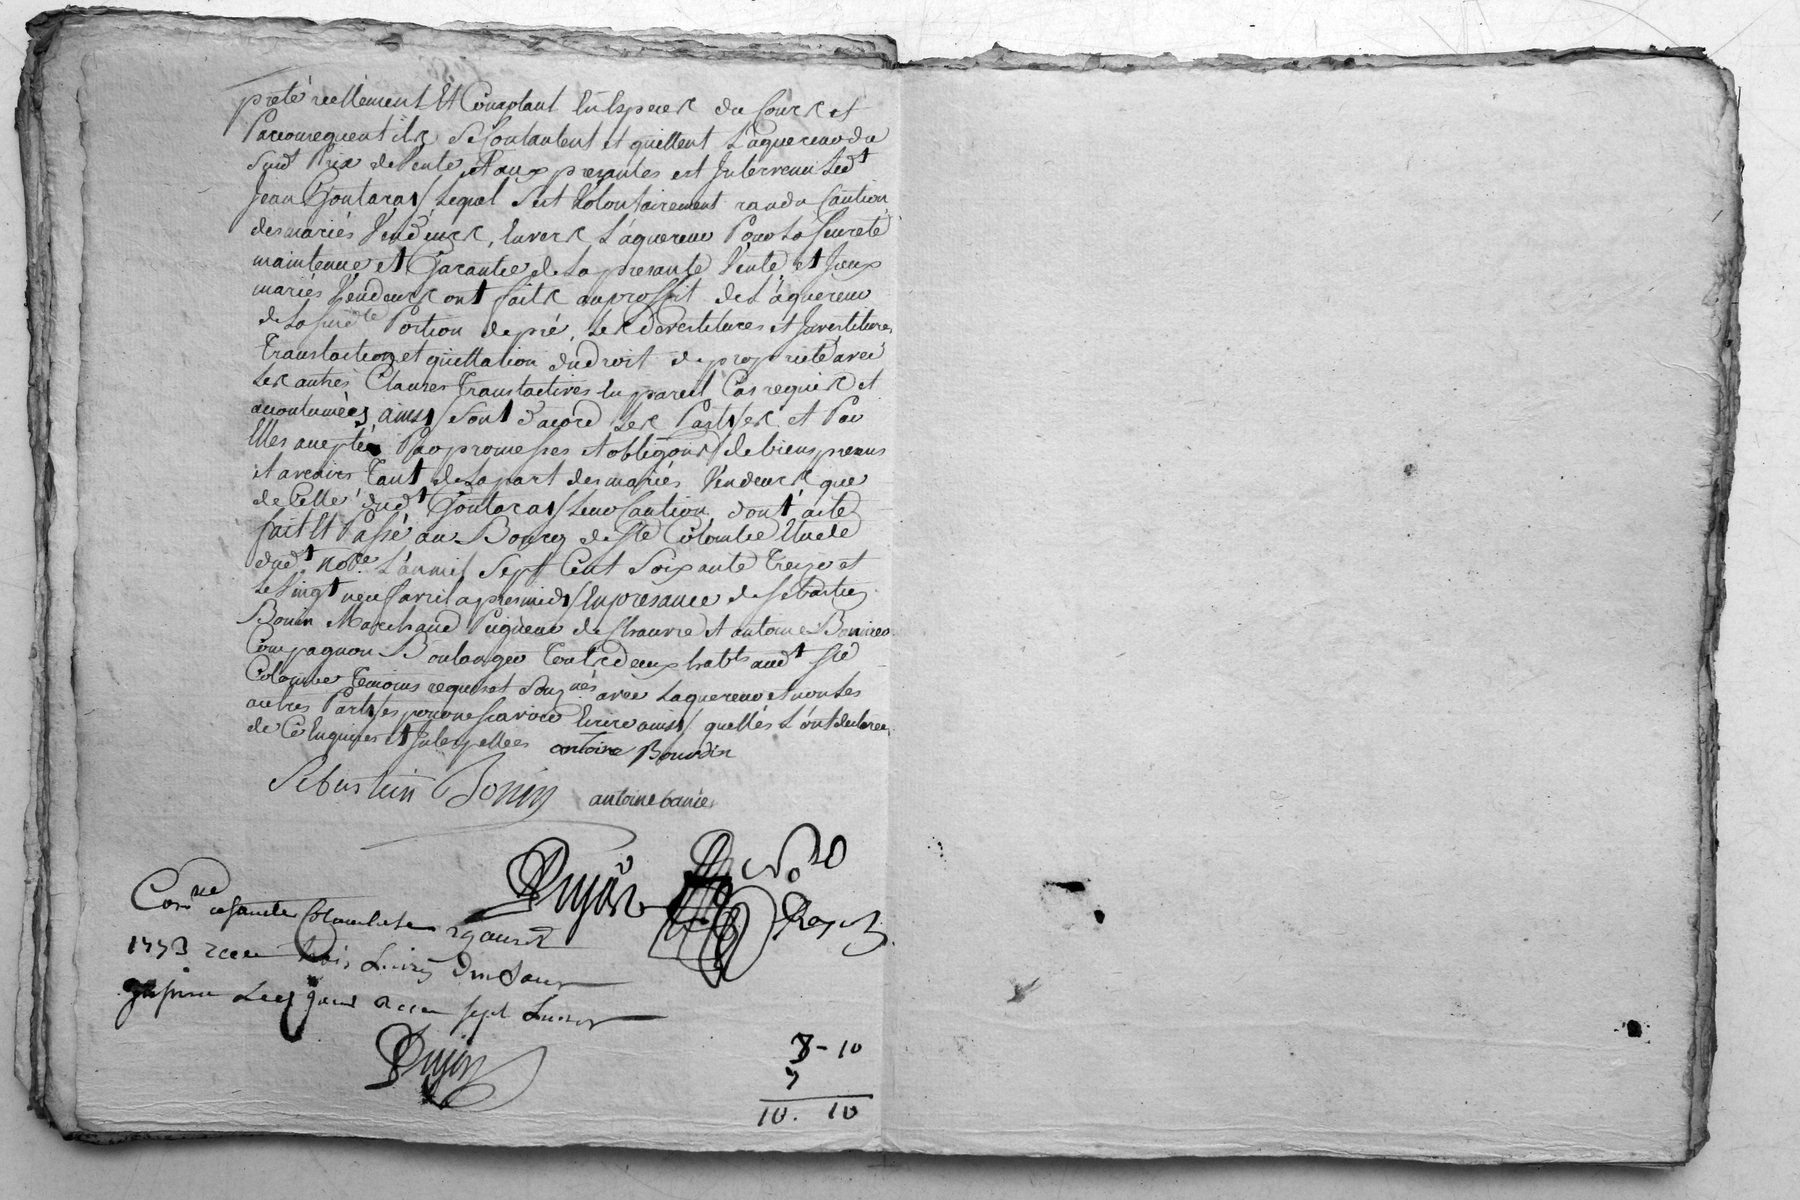 prêté reellement Et Comptant En Especes du Cours et
Parconsequent ils se Contantent et quittent L'aquereur du
Susd Prix de Vente, Et aux presantes est Intervenu Led^t
Jean Gontaras Lequel s'est Volontairement randu Caution
des mariés Vendeurs, Envers L'aquereur Pour La seureté
maintenue et Garantie de La presante Vente, et Iceux
mariés Vendeurs ont faits au proffit de L'aquereur
de La susd^te Portion de pré, les devestitures et Investitures
Translation et quittation du droit de proprieté avec
Les autres Clauses Translatives En pareil Cas requises et
acoutumées, ainsi sont d'acord les Parties et Par
Elles accepté Par promesses et obligõns de biens presens
et avenirs Tant de La part des mariés Vendeurs que
de Celle dud^t Gontaras Leur Caution, dont acte
fait Et Passé au Bourg de Ste Colombe Etude
dud^t No^re L'an mil Sept Cent Soixante Treize et
Le Vingt neuf avril apres midi En presance de sebastien
Bonin Marchand Peigneur de Chanvre et antoine
Compagnon Boulanger Touts deux hab^ts aud^t Ste
Colombe Temoins requis et Soug^nés avec Laquereur et non Les
autres Parties pour ne scavoir Ecrire ainsi quelles L'ont declaré
de Ce Enquises et Interpellees antoine Bourdin
Sebastein Bonin antoine banier
Dujõr No^re
Royal
Con^rlé a sainte Colombe le
1773 receu trois Livres dix sous
receu sept Livres
Dujõr
3 - 10
7
10. 10